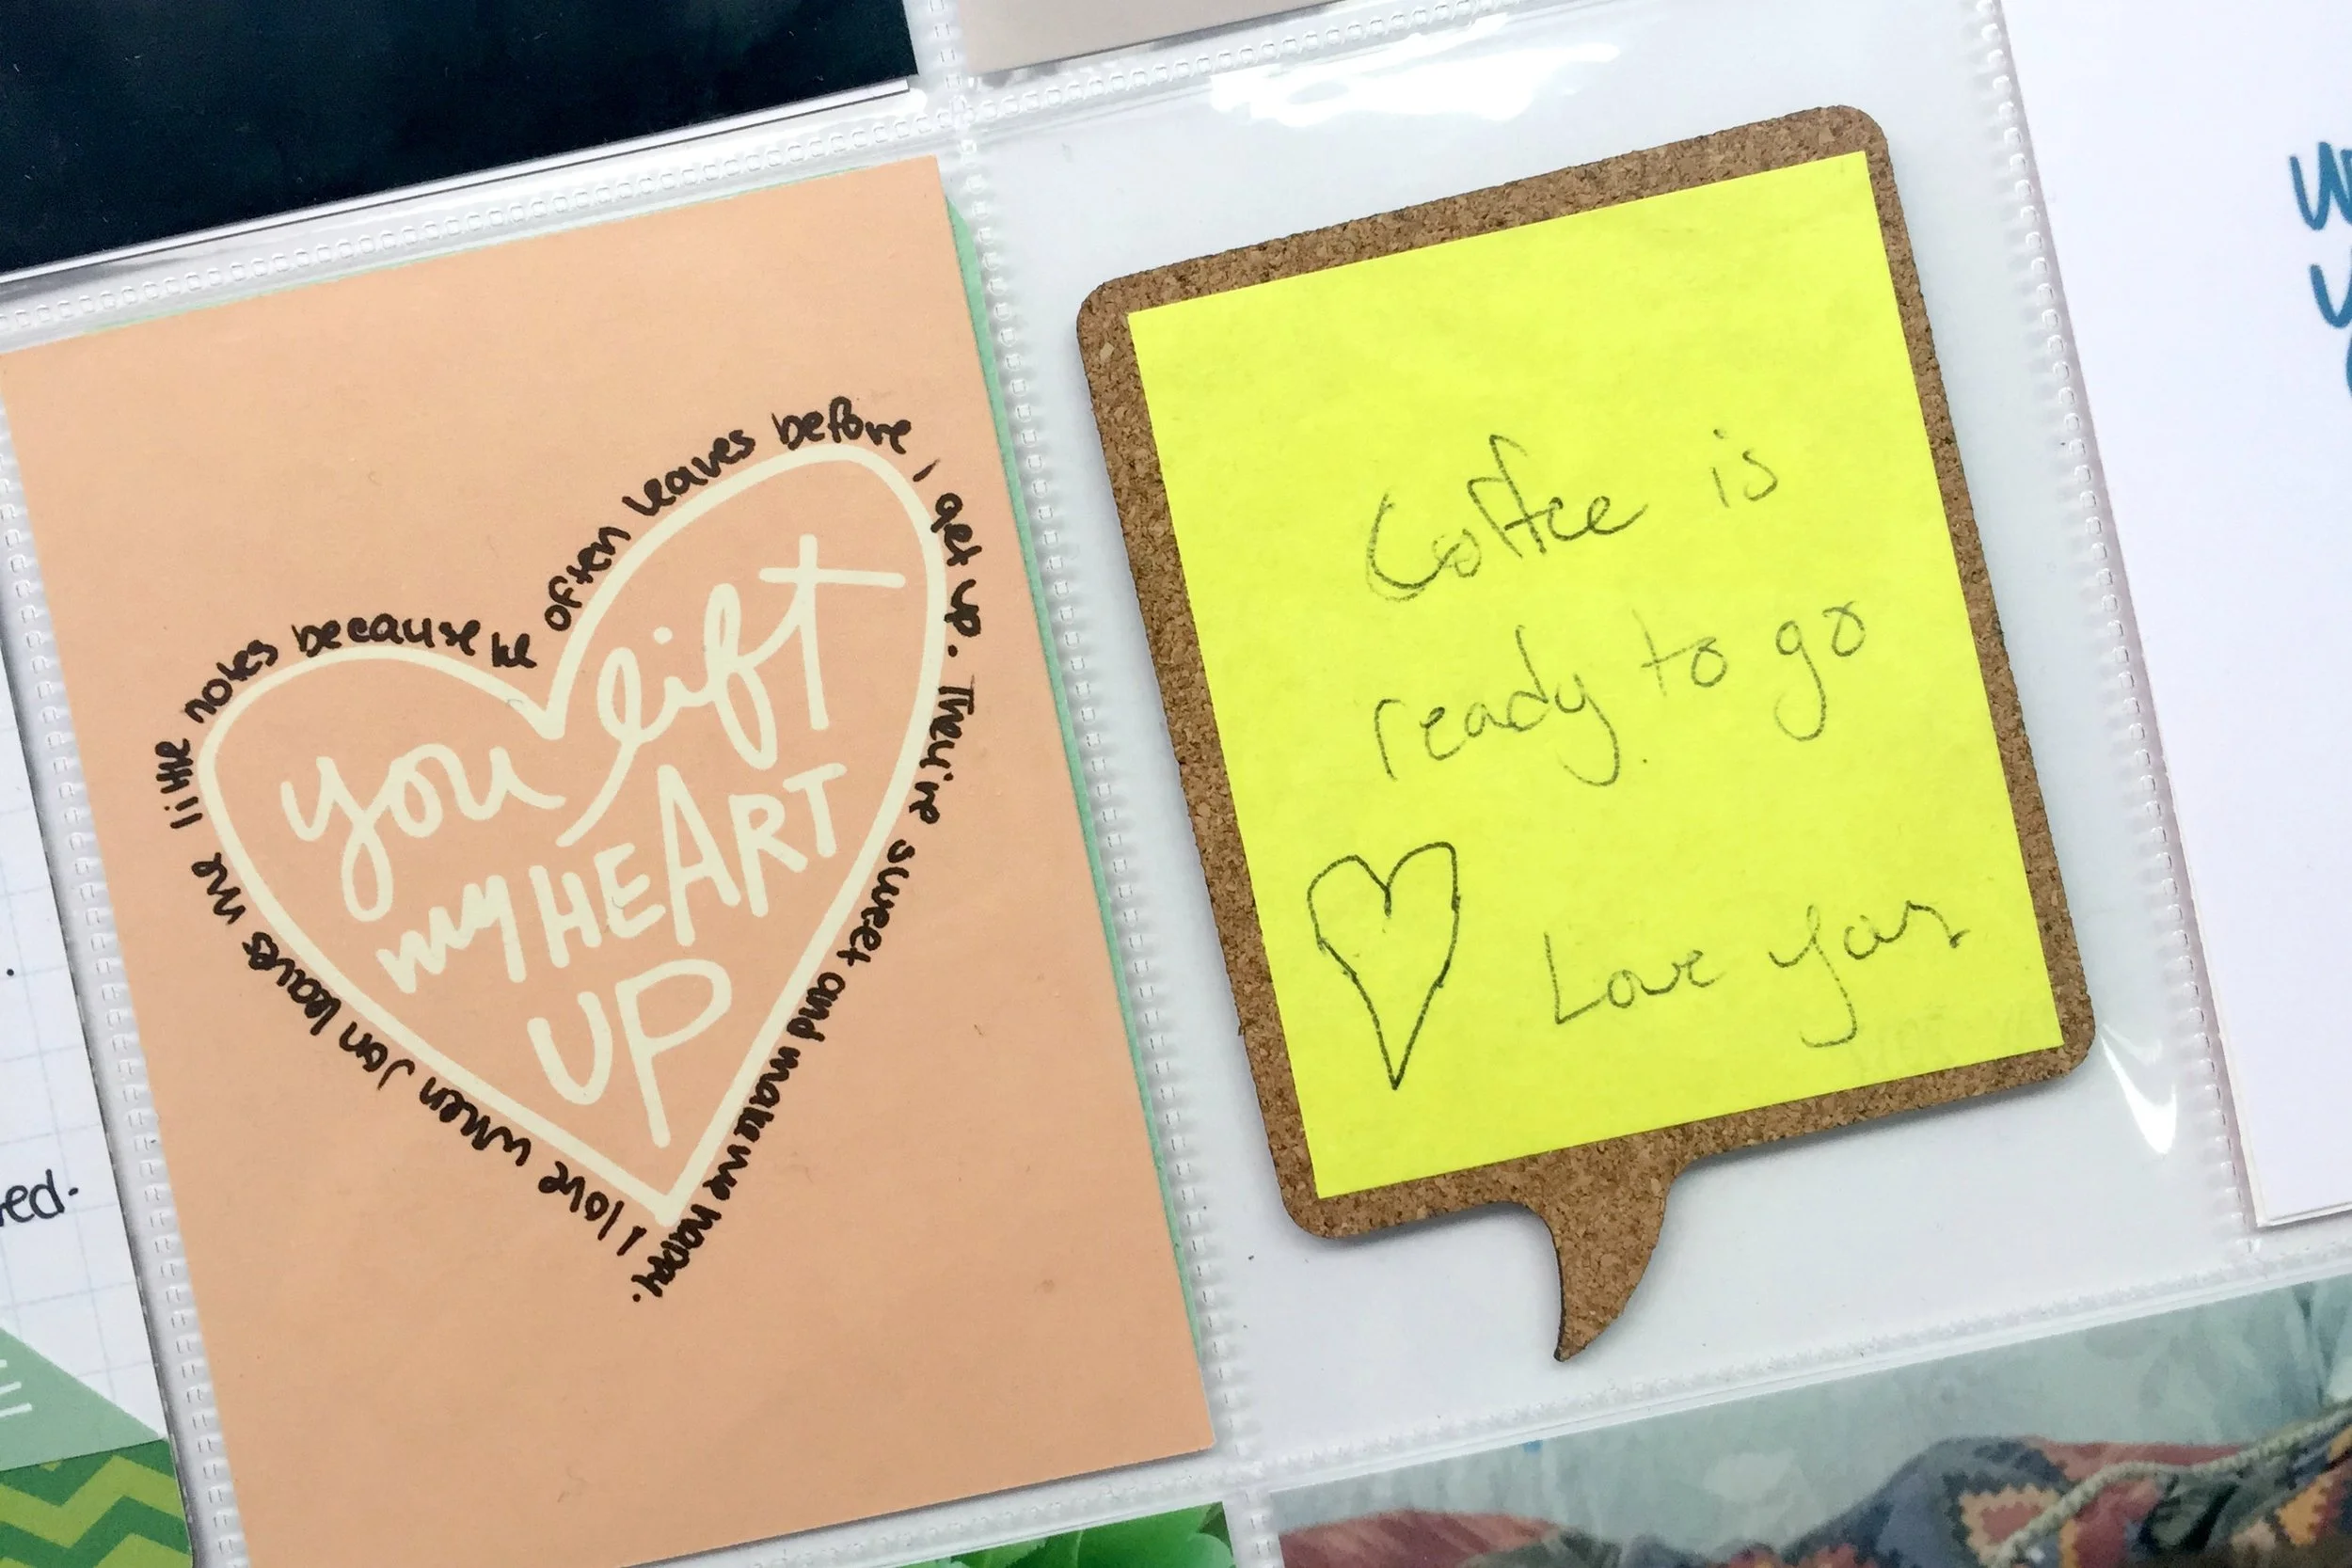 you lift
my HEART
UP
I love when Jon leaves me little notes because he often leaves before I get up. They're sweet and make me happy.
Coffee is
ready to go
Love you